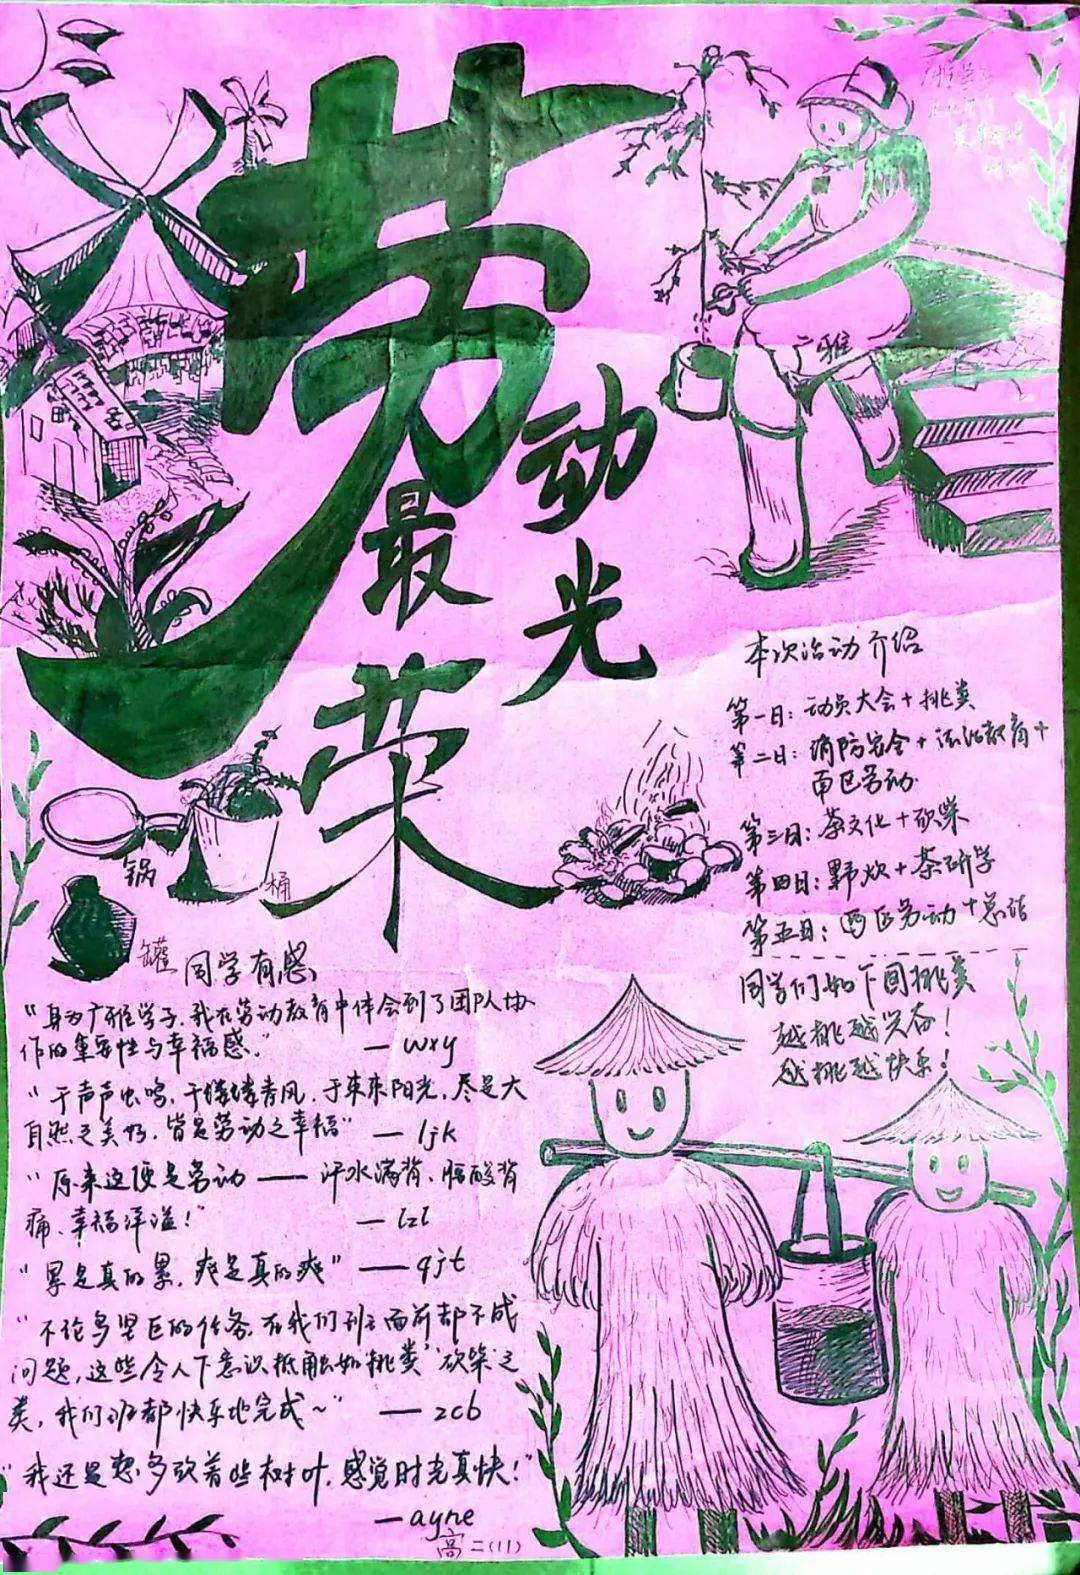 劳动最光荣
二雅
本次活动介绍
第一日：动员大会+挑粪
第二日：消防安全+法治教育+
西区劳动
第三日：茶文化+砍柴
第四日：野炊+茶研学
第五日：西区劳动+总结
同学们如下图挑粪
越挑越兴奋！
越挑越快乐！
锅
桶
罐
同学有感
“身为广雅学子，我在劳动教育中体会到了团队协
作的重要性与幸福感。” —wxy
“于声声虫鸣，于缕缕春风，于束束阳光，尽是大
自然之美好，皆是劳动之幸福” —ljk
“原来这便是劳动——汗水满背、腰酸背
痛、幸福洋溢！” —lzl
“累是真的累，爽是真的爽” —qjt
“不论多艰巨的任务，在我们班面前都不成
问题，这些令人下意识抵触如‘挑粪’‘砍柴’之
类，我们班都快乐地完成~” —zcb
“我还是想多砍着些树叶，感觉时光真快！”
—ayne
高二(1)